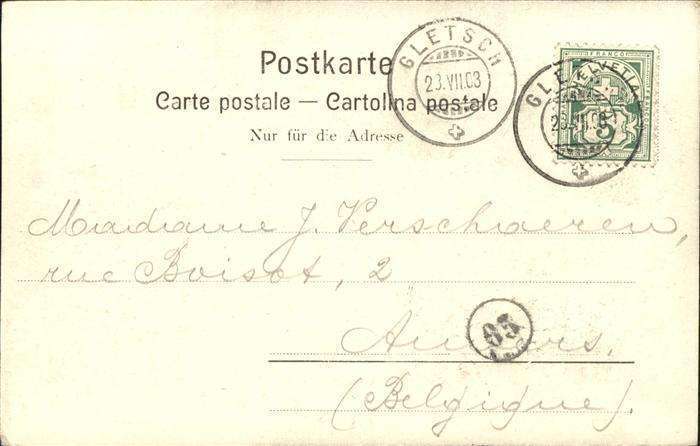 Postkarte
Carte postale — Cartolina postale
Nur für die Adresse
GLETSCH
23.VII.03
GLETSCH
23.VII.03
FRANCO
HELVETIA
5
Madame J. Verschaeren,
rue Boisot, 2
Anvers.
(Belgique).